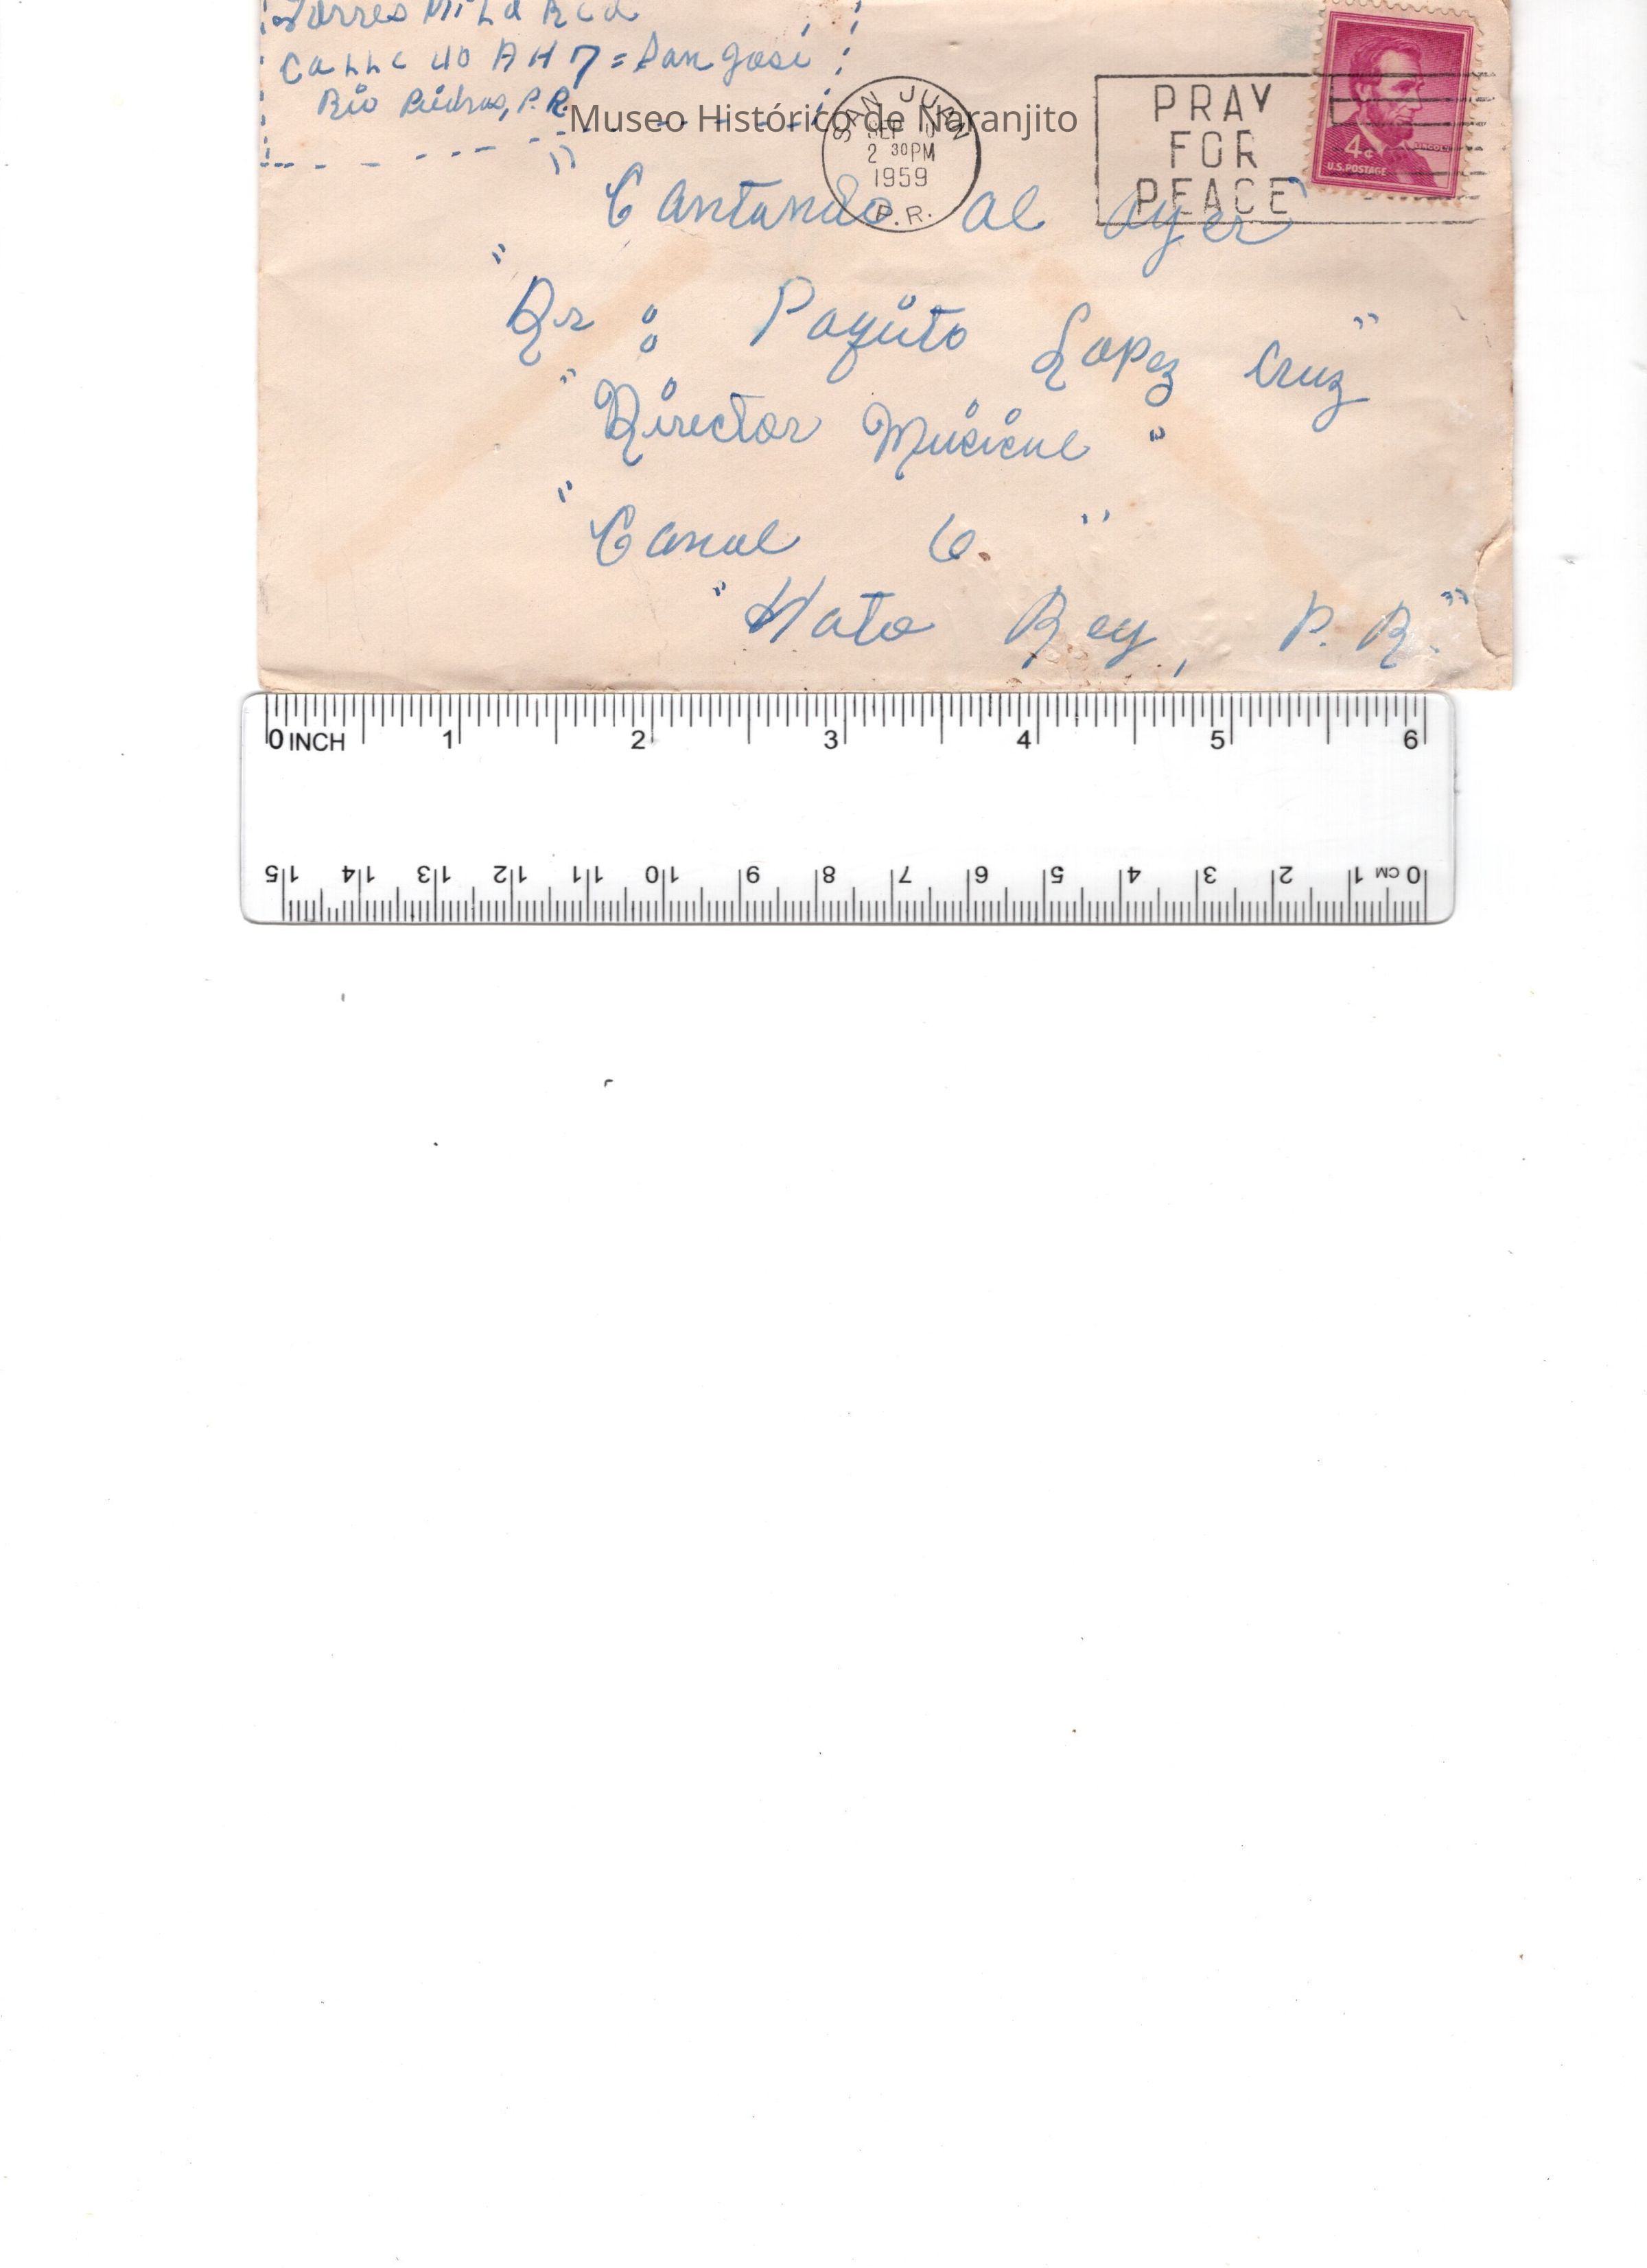 Torres Milagros
Calle 40 A H 7 = San José
Rio Piedras, P.R.
Museo Histórico de Naranjito
SAN JUAN
SEP
2 30PM
1959
P.R.
PRAY
FOR
PEACE
4¢
LINCOLN
U.S. POSTAGE
" Cantando al ayer "
" Dr : Paquito Lopez Cruz "
" Director Musical "
" Canal 6. "
" Hato Rey, P. R. "
0 INCH 1 2 3 4 5 6
15 14 13 12 11 10 9 8 7 6 5 4 3 2 1 CM 0